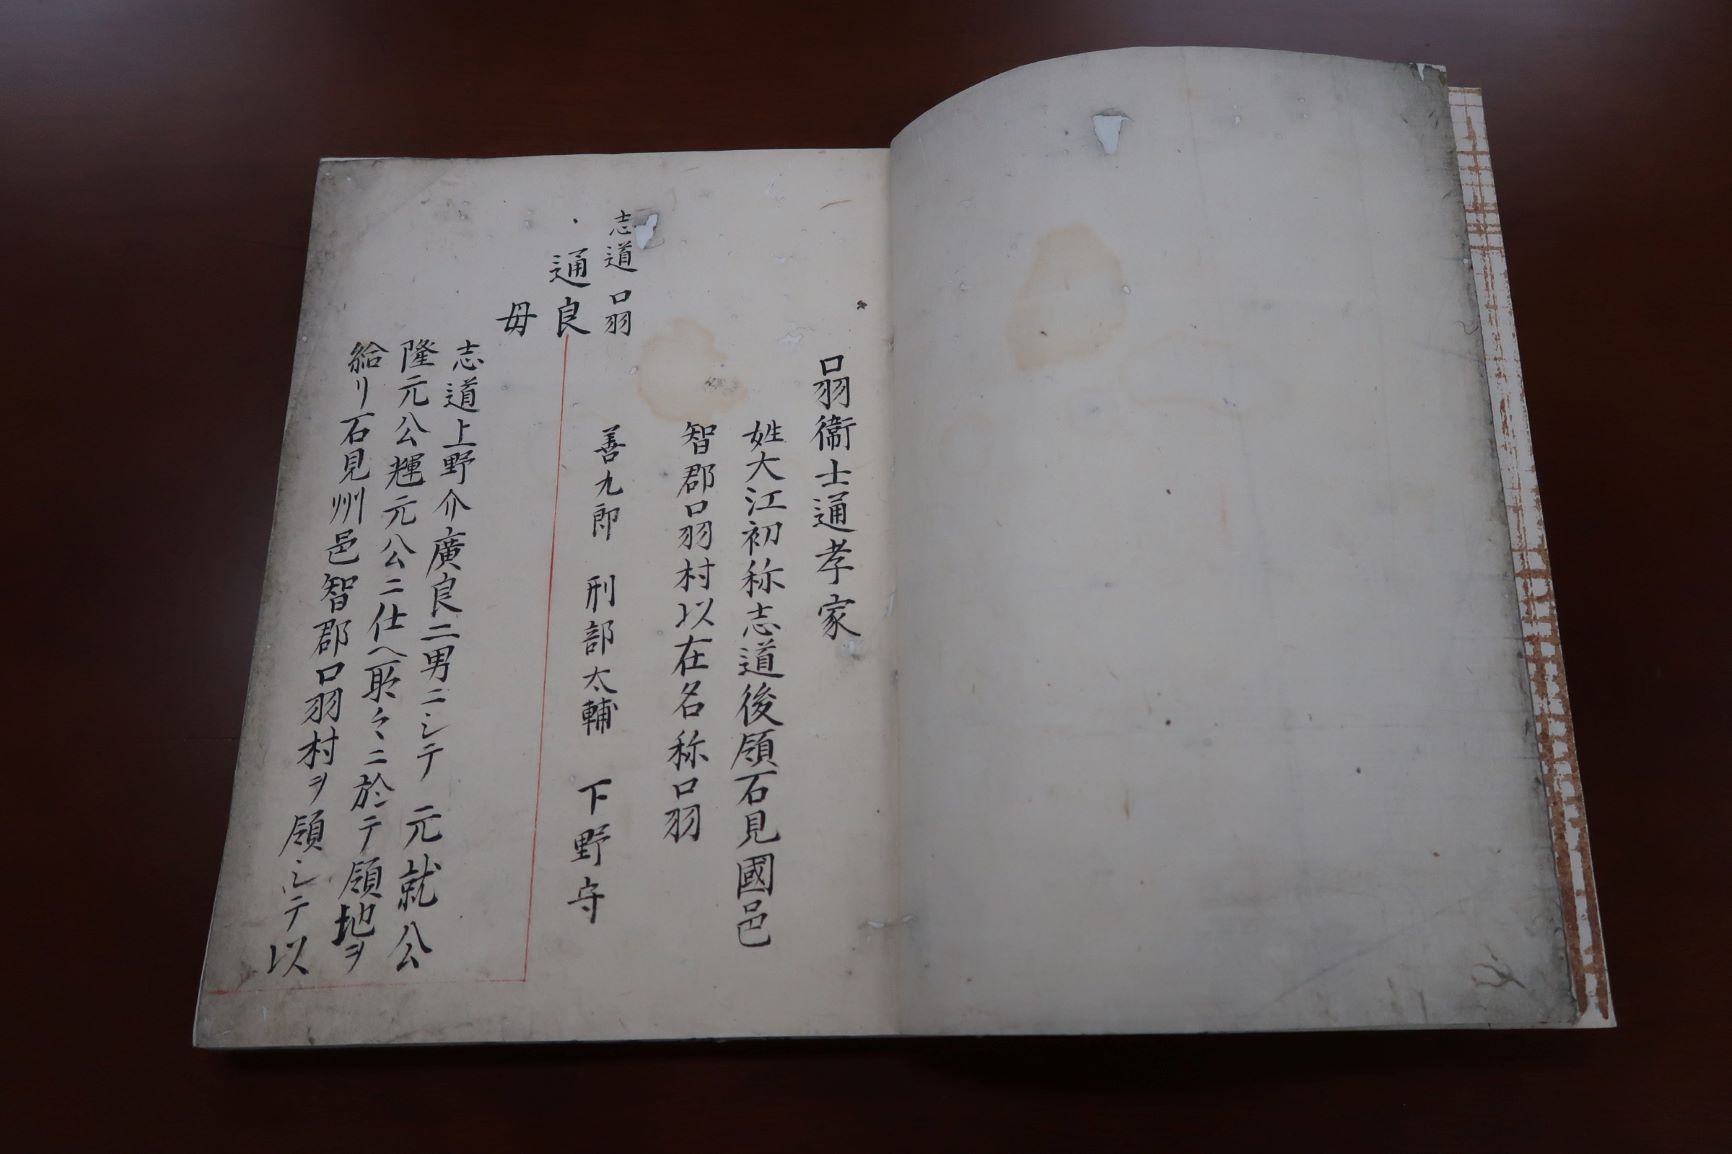 口羽衞士通孝家
姓大江初称志道後領石見國邑
智郡口羽村以在名称口羽
志道 口羽
通良
善九郎 刑部太輔 下野守
母
志道上野介廣良二男ニシテ 元就公
隆元公輝元公ニ仕ヘ所々ニ於テ領地ヲ
給リ石見州邑智郡口羽村ヲ領シテ以